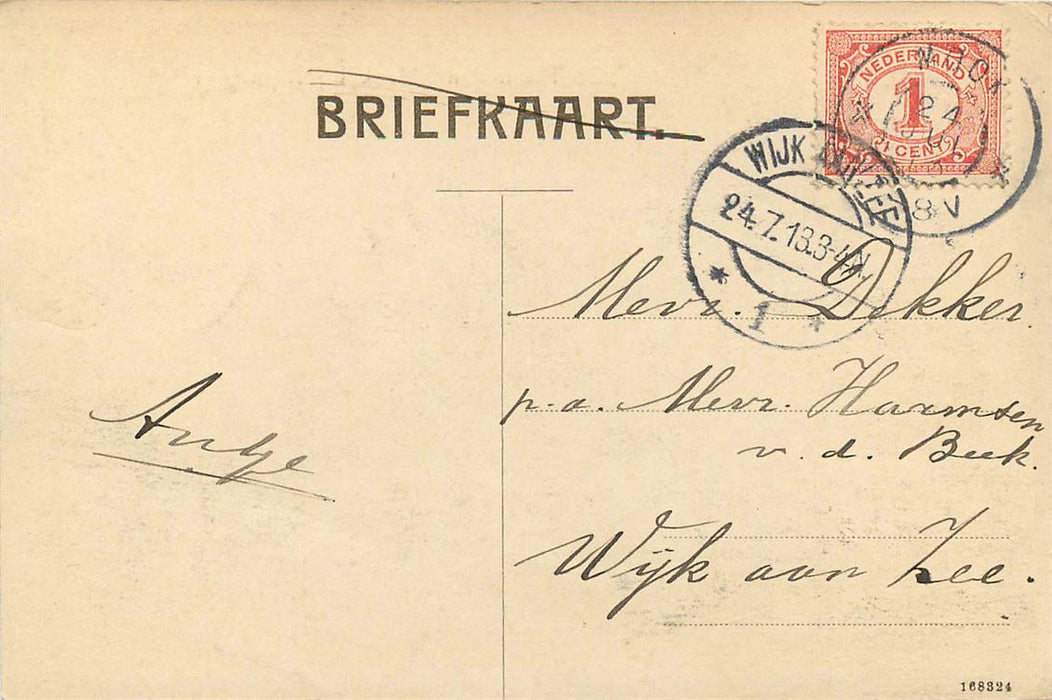 BRIEFKAART.
NEDERLAND
1
1 CENT
24
8 V
WIJK AAN ZEE
24.7.13.3-4N.
1
Mevr. Dekker.
p.a. Mevr. Harmsen
v. d. Beek.
Wijk aan Zee.
168324